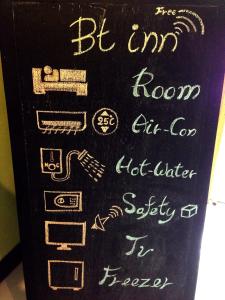 Free
Bt inn
Room
25c Air-Con
Hot-Water
Safety
Tv
Freezer